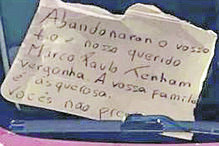 Abandonaram o vosso
tio, nosso querido
Marco Paulo Tenham
vergonha. A vossa familia
é asquerosa.
Vocês não